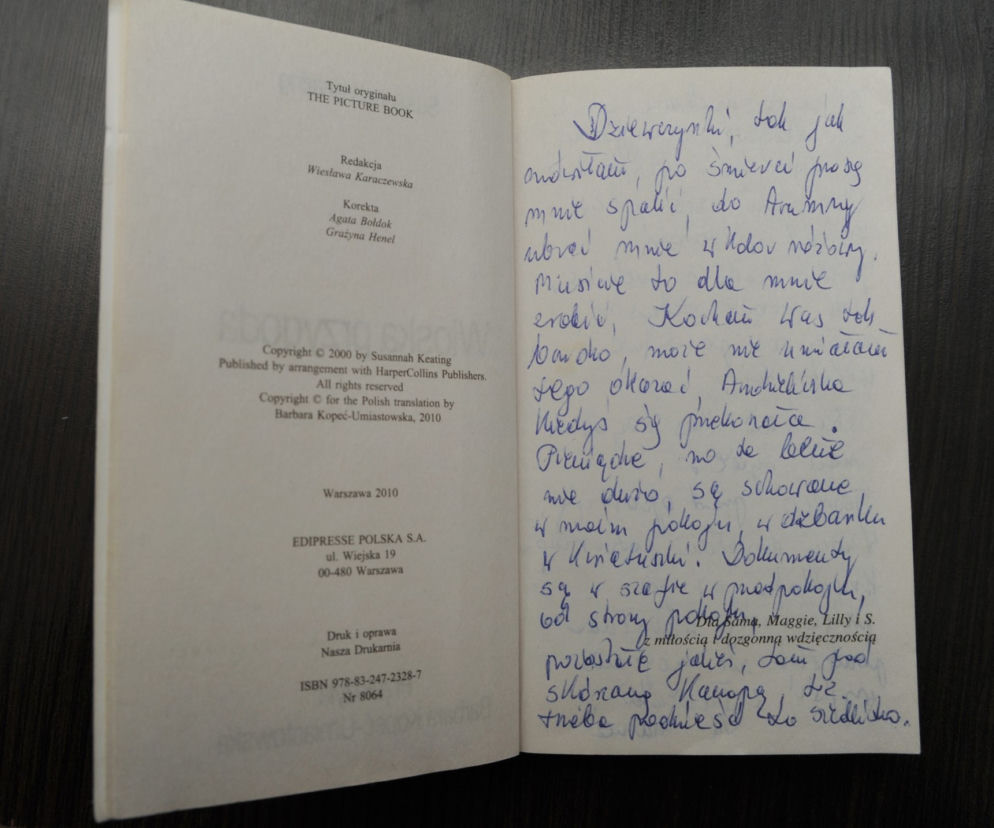 Tytuł oryginału
THE PICTURE BOOK
Redakcja
Wiesława Karaczewska
Korekta
Agata Bołdok
Grażyna Henel
Copyright © 2000 by Susannah Keating
Published by arrangement with HarperCollins Publishers.
All rights reserved
Copyright © for the Polish translation by
Barbara Kopeć-Umiastowska, 2010
Warszawa 2010
EDIPRESSE POLSKA S.A.
ul. Wiejska 19
00-480 Warszawa
Druk i oprawa
Nasza Drukarnia
ISBN 978-83-247-2328-7
Nr 8064
Dziewczynki, tak jak
mówiłam, po śmierci proszę
mnie spalić, do trumny
ubrać mnie w kolor różowy.
Musicie to dla mnie
zrobić, Kocham was tak
bardzo, może nie umiałam
tego okazać,
kiedyś się przekonała.
Pieniądze, no te
nie dużo, są schowane
w moim pokoju, w dzbanku
w kwiatuszki. Dokumenty
są w szafie w przedpokoju,
od strony pokoju,
Dla Sama, Maggie, Lilly i S.
z miłością i dozgonną wdzięcznością
jakieś, tam pod
skórzaną kanapą, tż.
trzeba podnieść to siedlisko.